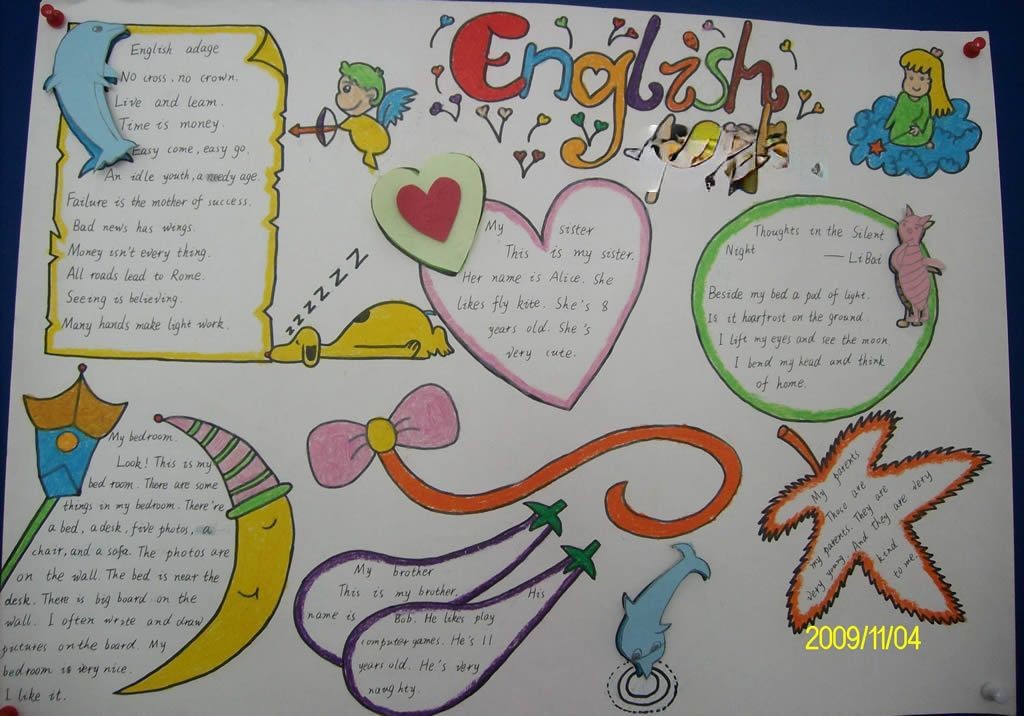 English
English adage
No cross, no crown.
Live and learn.
Time is money.
Easy come, easy go.
An idle youth, a needy age.
Failure is the mother of success.
Bad news has wings.
Money isn't every thing.
All roads lead to Rome.
Seeing is believing.
Many hands make light work.
zzzzzzz
My sister
This is my sister.
Her name is Alice. She
likes fly kite. She's 8
years old. She's
very cute.
Thoughts in the Silent
Night
— LiBai
Beside my bed a pud of light.
Is it hoarfrost on the ground.
I lift my eyes and see the moon.
I bend my head and think
of home.
My bedroom.
Look! This is my
bed room. There are some
things in my bedroom. There're
a bed, a desk, five photos, a
chair, and a sofa. The photos are
on the wall. The bed is near the
desk. There is big board on the
wall. I often write and draw
pictures on the board. My
bedroom is very nice.
I like it.
My brother
This is my brother. His
name is Bob. He likes play
computer games. He's 11
years old. He's very
naughty.
My parents
Those are
my parents. They are
very young. And they are very
kind
to me.
2009/11/04